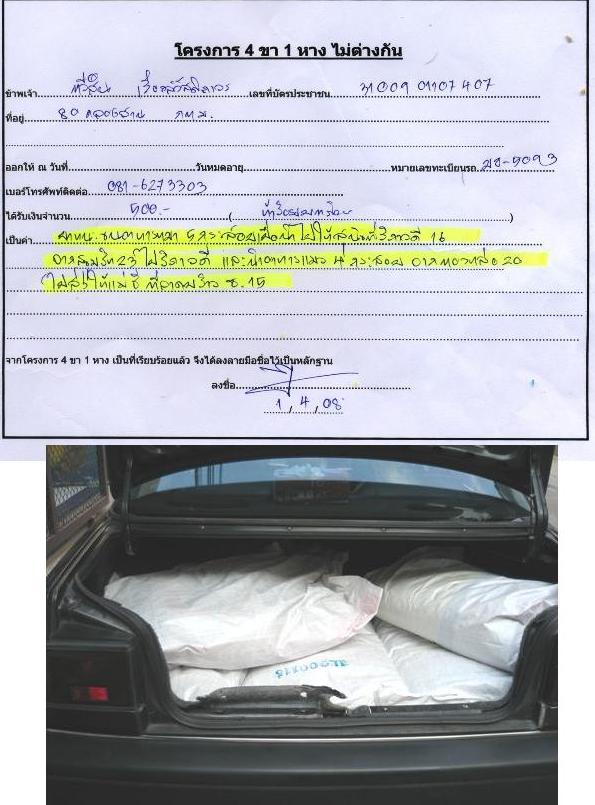 โครงการ 4 ขา 1 หาง ไม่ต่างกัน
ข้าพเจ้า ทวีสิน เลขที่บัตรประชาชน 31009 01107 407
ที่อยู่ 80 คลองสาน กทม.
ออกให้ ณ วันที่ วันหมดอายุ หมายเลขทะเบียนรถ มข-5093
เบอร์โทรศัพท์ติดต่อ 081-6273303
ได้รับเงินจำนวน 500.- (ห้าร้อยบาทถ้วน)
เป็นค่า 5 กระสอบ ไปให้ วิภาวดี 16
จากสุขุมวิท 23 ไปวิภาวดี และนำอาหารแมว 4 กระสอบ จากทองหล่อ 20
ไปส่งให้แม่ชี ที่ลาดพร้าว ซ.15
จากโครงการ 4 ขา 1 หาง เป็นที่เรียบร้อยแล้ว จึงได้ลงลายมือชื่อไว้เป็นหลักฐาน
ลงชื่อ
1, 4, 08